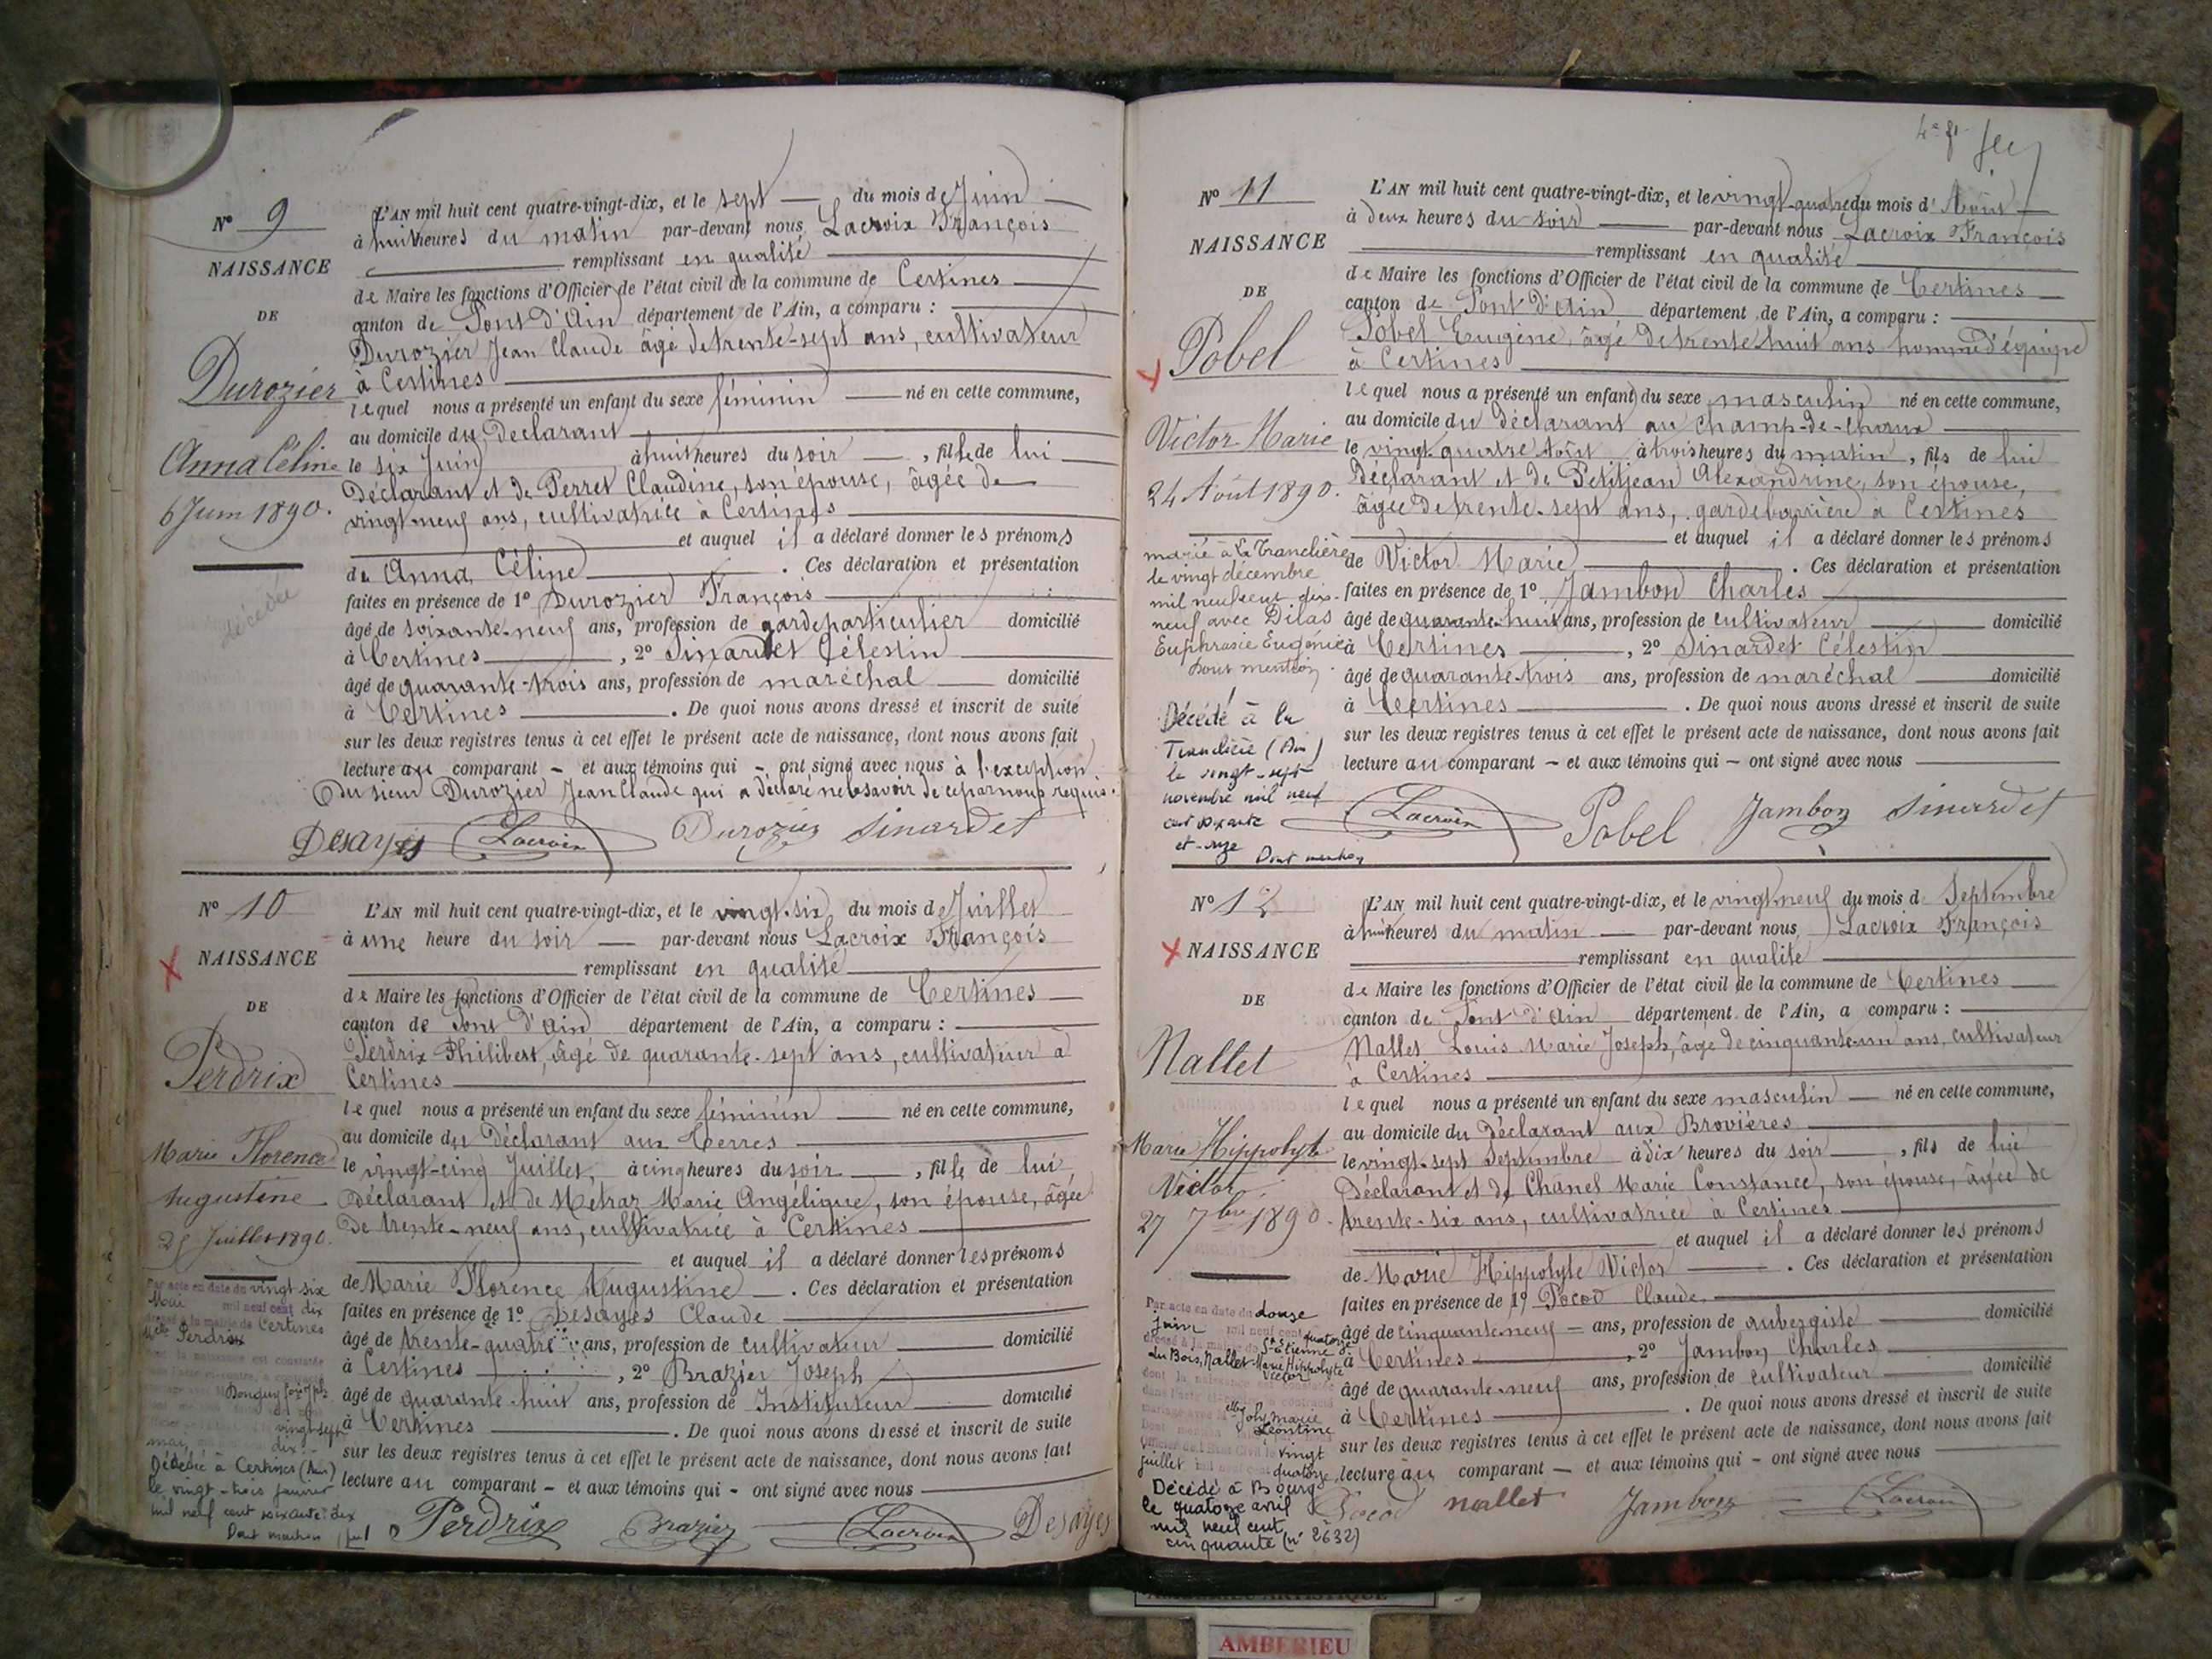 N° 9
NAISSANCE
DE
Durozier
Anna Céline
6 Juin 1890.
décédée
L'AN mil huit cent quatre-vingt-dix, et le sept du mois de Juin
à huit heures du matin par-devant nous Lacroix François
remplissant en qualité
de Maire les fonctions d'Officier de l'état civil de la commune de Certines
canton de Pont d'Ain département de l'Ain, a comparu :
Durozier Jean Claude âgé de trente-sept ans, cultivateur
à Certines
lequel nous a présenté un enfant du sexe féminin né en cette commune,
au domicile du Déclarant
le six Juin à huit heures du soir, fille de lui
Déclarant et de Perret Claudine, son épouse, âgée de
vingt-neuf ans, cultivatrice à Certines
et auquel il a déclaré donner les prénoms
de Anna Céline. Ces déclaration et présentation
faites en présence de 1° Durozier François
âgé de soixante-neuf ans, profession de garde particulier domicilié
à Certines, 2° Sinardet Célestin
âgé de quarante-trois ans, profession de maréchal domicilié
à Certines. De quoi nous avons dressé et inscrit de suite
sur les deux registres tenus à cet effet le présent acte de naissance, dont nous avons fait
lecture au comparant - et aux témoins qui - ont signé avec nous à l'exception
du sieur Durozier Jean Claude qui a déclaré ne le savoir de ce par nous requis.
Desayes Lacroix Durozier Sinardet
N° 10
NAISSANCE
DE
Perdrix
Marie Florence
Augustine
25 Juillet 1890.
Par acte en date du vingt-six
Mai mil neuf cent dix
à la mairie de Certines
Melle Perdrix
dont la naissance est constatée
Donguy Joseph
vingt-sept
mai, dix
Décédée à Certines (Ain)
le vingt-trois janvier
mil neuf cent soixante-dix
Dont mention
L'AN mil huit cent quatre-vingt-dix, et le vingt-six du mois de Juillet
à une heure du soir par-devant nous Lacroix François
remplissant en qualité
de Maire les fonctions d'Officier de l'état civil de la commune de Certines
canton de Pont d'Ain département de l'Ain, a comparu :
Perdrix Philibert, âgé de quarante-sept ans, cultivateur à
Certines
lequel nous a présenté un enfant du sexe féminin né en cette commune,
au domicile du Déclarant aux Terres
le vingt-cinq Juillet, à cinq heures du soir, fille de lui
Déclarant et de Metraz Marie Angélique, son épouse, âgée
de trente-neuf ans, cultivatrice à Certines
et auquel il a déclaré donner les prénoms
de Marie Florence Augustine. Ces déclaration et présentation
faites en présence de 1° Desayes Claude
âgé de trente-quatre ans, profession de cultivateur domicilié
à Certines, 2° Brazier Joseph
âgé de quarante-huit ans, profession de Instituteur domicilié
à Certines. De quoi nous avons dressé et inscrit de suite
sur les deux registres tenus à cet effet le présent acte de naissance, dont nous avons fait
lecture au comparant - et aux témoins qui - ont signé avec nous
Perdrix Brazier Lacroix Desayes
N° 11
NAISSANCE
DE
Pobel
Victor Marie
24 Août 1890.
marié à La Tranclière
le vingt décembre
mil neuf cent dix-
neuf avec Dilas
Euphrasie Eugénie
Dont mention.
Décédé à la
Tranclière (Ain)
le vingt-sept
novembre mil neuf
cent soixante
et-onze Dont mention
L'AN mil huit cent quatre-vingt-dix, et le vingt-quatre du mois d'Août
à deux heures du soir par-devant nous Lacroix François
remplissant en qualité
de Maire les fonctions d'Officier de l'état civil de la commune de Certines
canton de Pont d'Ain département de l'Ain, a comparu :
Pobel Eugène, âgé de trente-huit ans homme d'équipe
à Certines
lequel nous a présenté un enfant du sexe masculin né en cette commune,
au domicile du déclarant au Champ-de-Chaux
le vingt-quatre Août à trois heures du matin, fils de lui
Déclarant et de Petitjean Alexandrine, son épouse,
âgée de trente-sept ans, garde barrière à Certines
et auquel il a déclaré donner les prénoms
de Victor Marie. Ces déclaration et présentation
faites en présence de 1° Jambon Charles
âgé de quarante-huit ans, profession de cultivateur domicilié
à Certines, 2° Sinardet Célestin
âgé de quarante-trois ans, profession de maréchal domicilié
à Certines. De quoi nous avons dressé et inscrit de suite
sur les deux registres tenus à cet effet le présent acte de naissance, dont nous avons fait
lecture au comparant - et aux témoins qui - ont signé avec nous
Lacroix Pobel Jambon Sinardet
N° 12
NAISSANCE
DE
Nallet
Marie Hippolyte
Victor
27 7bre 1890.
Par acte en date du douze
Juin mil neuf cent quatorze
dressé à la mairie de St Etienne
du Bois, Nallet Marie Hippolyte
Victor
dont la naissance est constatée
mariage avec Melle Joly Marie
Léontine
Officier de l'Etat Civil le vingt
juillet mil neuf cent quatorze
Décédé à Bourg
le quatorze avril
mil neuf cent
cinquante (n° 2632)
L'AN mil huit cent quatre-vingt-dix, et le vingt-neuf du mois de Septembre
à huit heures du matin par-devant nous Lacroix François
remplissant en qualité
de Maire les fonctions d'Officier de l'état civil de la commune de Certines
canton de Pont d'Ain département de l'Ain, a comparu :
Nallet Louis Marie Joseph, âgé de cinquante-un ans, cultivateur
à Certines
lequel nous a présenté un enfant du sexe masculin né en cette commune,
au domicile du Déclarant aux Brovières
le vingt-sept Septembre à dix heures du soir, fils de lui
Déclarant et de Chanel Marie Constance, son épouse, âgée de
trente-six ans, cultivatrice à Certines
et auquel il a déclaré donner les prénoms
de Marie Hippolyte Victor. Ces déclaration et présentation
faites en présence de 1° Pocod Claude
âgé de cinquante-neuf ans, profession de aubergiste domicilié
à Certines, 2° Jambon Charles
âgé de quarante-neuf ans, profession de cultivateur domicilié
à Certines. De quoi nous avons dressé et inscrit de suite
sur les deux registres tenus à cet effet le présent acte de naissance, dont nous avons fait
lecture au comparant - et aux témoins qui - ont signé avec nous
Pocod Nallet Jambon Lacroix
AMBERIEU